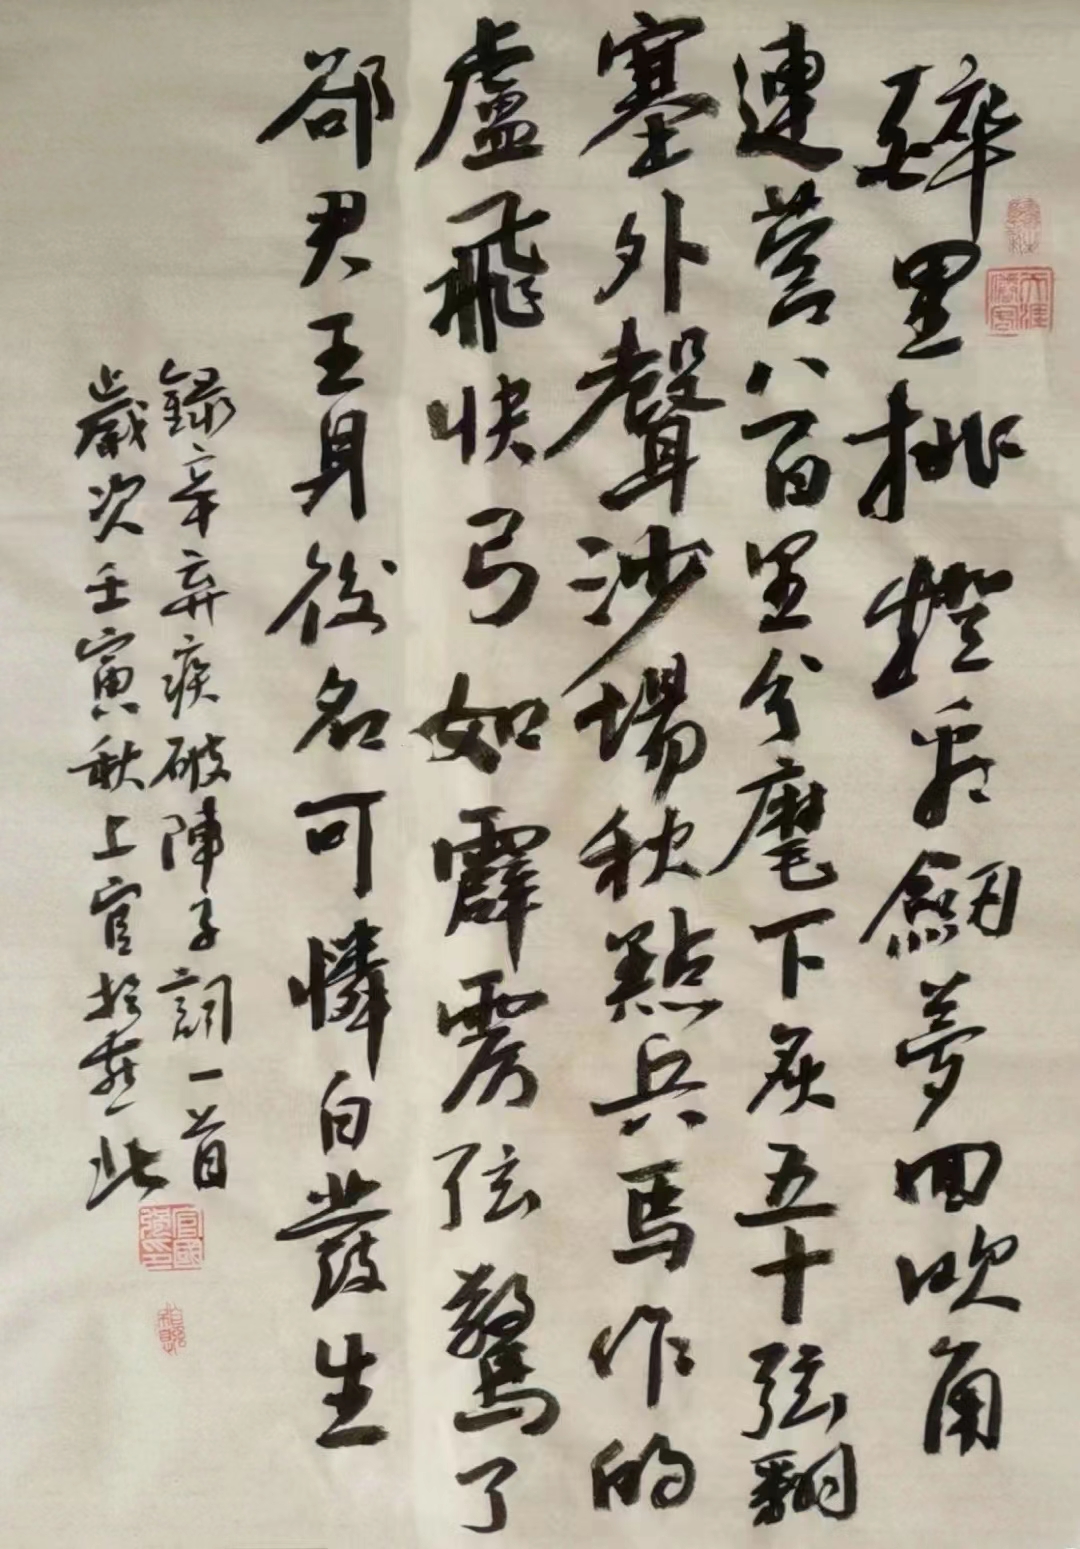 醉里挑燈看劒夢回吹角
連營八百里分麾下炙五十弦翻
塞外聲沙場秋點兵馬作的
盧飛快弓如霹雳弦驚了
卻君王身後名可憐白發生
錄辛弃疾破陣子詞一首
歲次壬寅秋上官於燕北
官國強印